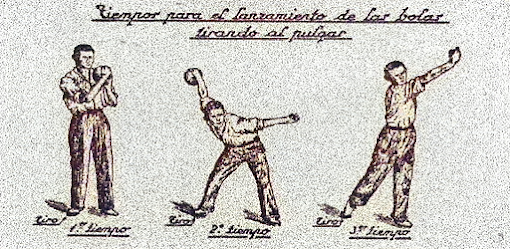 Tiempos para el lanzamiento de las bolas
tirando al pulgar
Tiro 1er tiempo
Tiro 2o tiempo
Tiro 3er tiempo